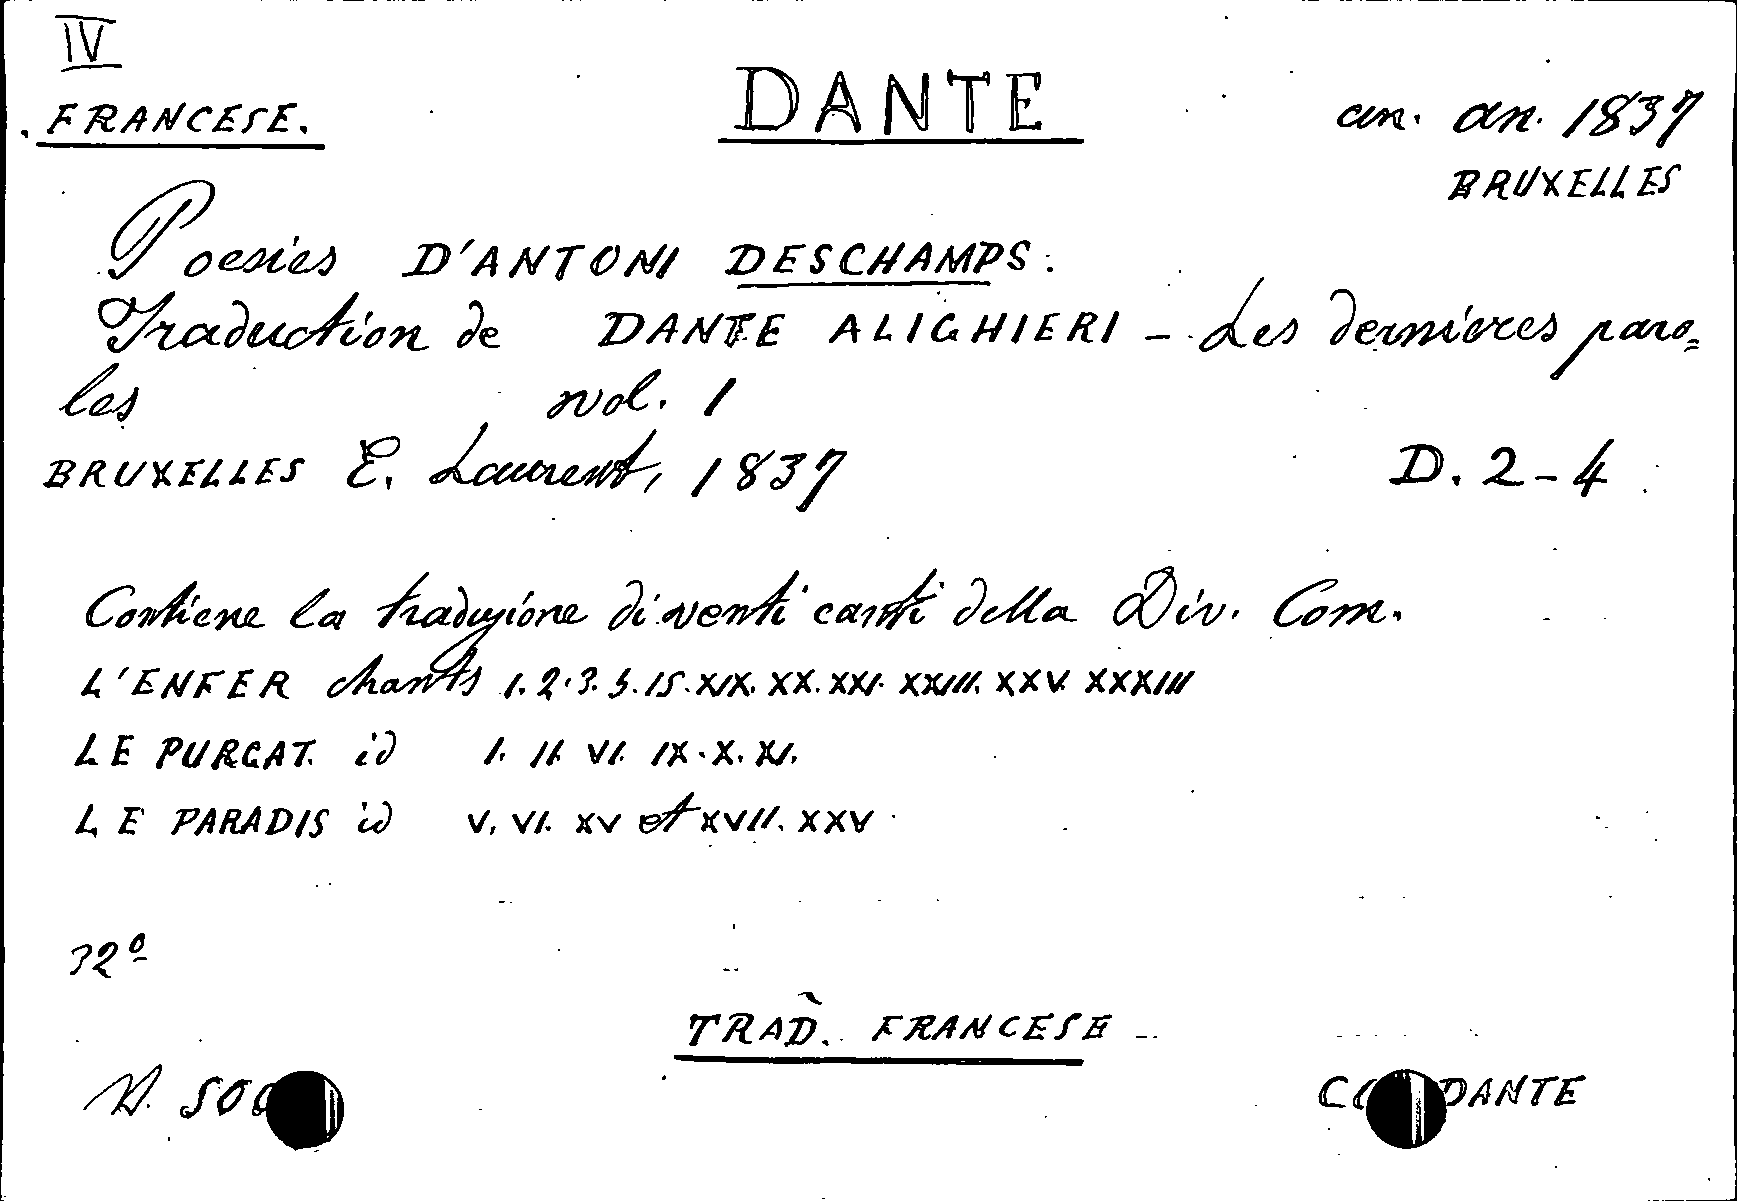 IV
FRANCESE.
DANTE
an. an. 1837
BRUXELLES
Poesies D'ANTONI DESCHAMPS.
Traduction de DANTE ALIGHIERI - Les dernieres paro=
les vol. 1
BRUXELLES E. Laurent, 1837 D. 2-4
Contiene la traduzione di venti canti della Div. Com.
L'ENFER chants 1. 2. 3. 5. 15. XIX. XX. XXI. XXIII. XXV. XXXIII
LE PURGAT. id I. II. VI. IX. X. XI.
LE PARADIS id V. VI. XV et XVII. XXV
32º
TRAD. FRANCESE
DANTE